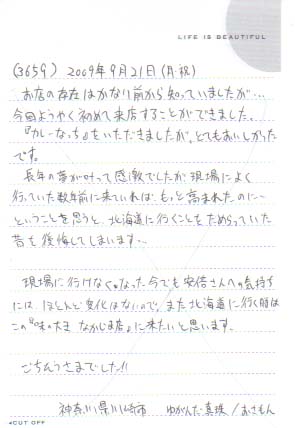 LIFE IS BEAUTIFUL
(3659) 2009年9月21日(月・祝)
お店の存在はかなり前から知っていましたが…
今回ようやく初めて来店することができました。
『カレーなっち』をいただきましたが、とてもおいしかった
です。
長年の夢が叶って感激でしたが、現場によく
行っていた数年前に来ていれば、もっと高まれたのに〜
ということを思うと、北海道に行くことをためらっていた
昔を後悔してしまいます…
現場に行けなくなった今でも安倍さんへの気持ち
には、ほとんど変化はないので、また北海道に行く時は
この『味の大王 なかじま店』に来たいと思います。
ごちそうさまでした!!
神奈川県川崎市 ゆがんだ真珠/おさもん
CUT OFF